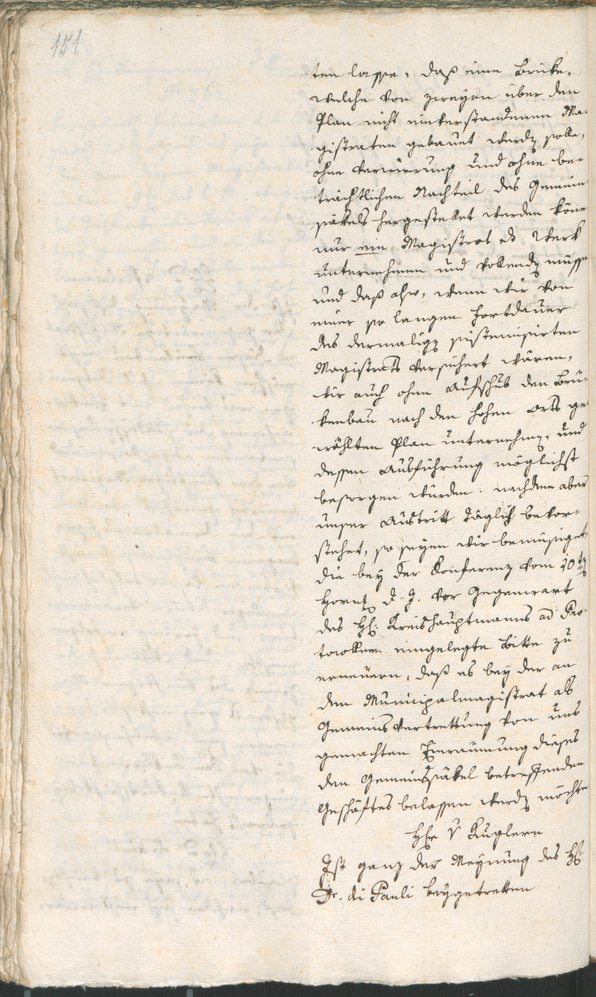 151
ten lasse, daß eine Brüke,
welche von zweyen über den
Plan nicht einverstandenen Ma¬
gistraten gebauet werdn solle,
ohne Verwirrung und ohne be¬
trächtlichen Nachteil des Gemein¬
säkels hergestellet werden köne
nur ein Magistrat ds Werk
unternehmen und vollendn müsse
und daß also, wenn wir von
einer so langen Fortdauer
des dermaligen sistemisirten
Magistrats versichert wären,
wir auch ohne Aufschub den Brü¬
kenbau nach den hohen Orts ge¬
wählten Plan unternehmen, und
dessen Ausführung möglichst
besorgen würden: nachdem aber
unser Austritt täglich bevor¬
stehet, so seyen wir bemüsiget,
die bey der Konferenz vom 20tn
Hornug d. J. vor Gegenwart
des Hl: Kreishauptmanns ad Pro¬
tocollum eingelegte Bitte zu
erneuern, daß es bey der an
den Municipalmagistrat als
Gemeinsvertrettung von uns
gemachten Einraumung dieses
den Gemeinsäkel betreffenden
Geschäftes belassen werdn möchte
Hhr v Kuglern
Ist ganz der Meynung des Hl:
Dr. di Pauli beygetretten